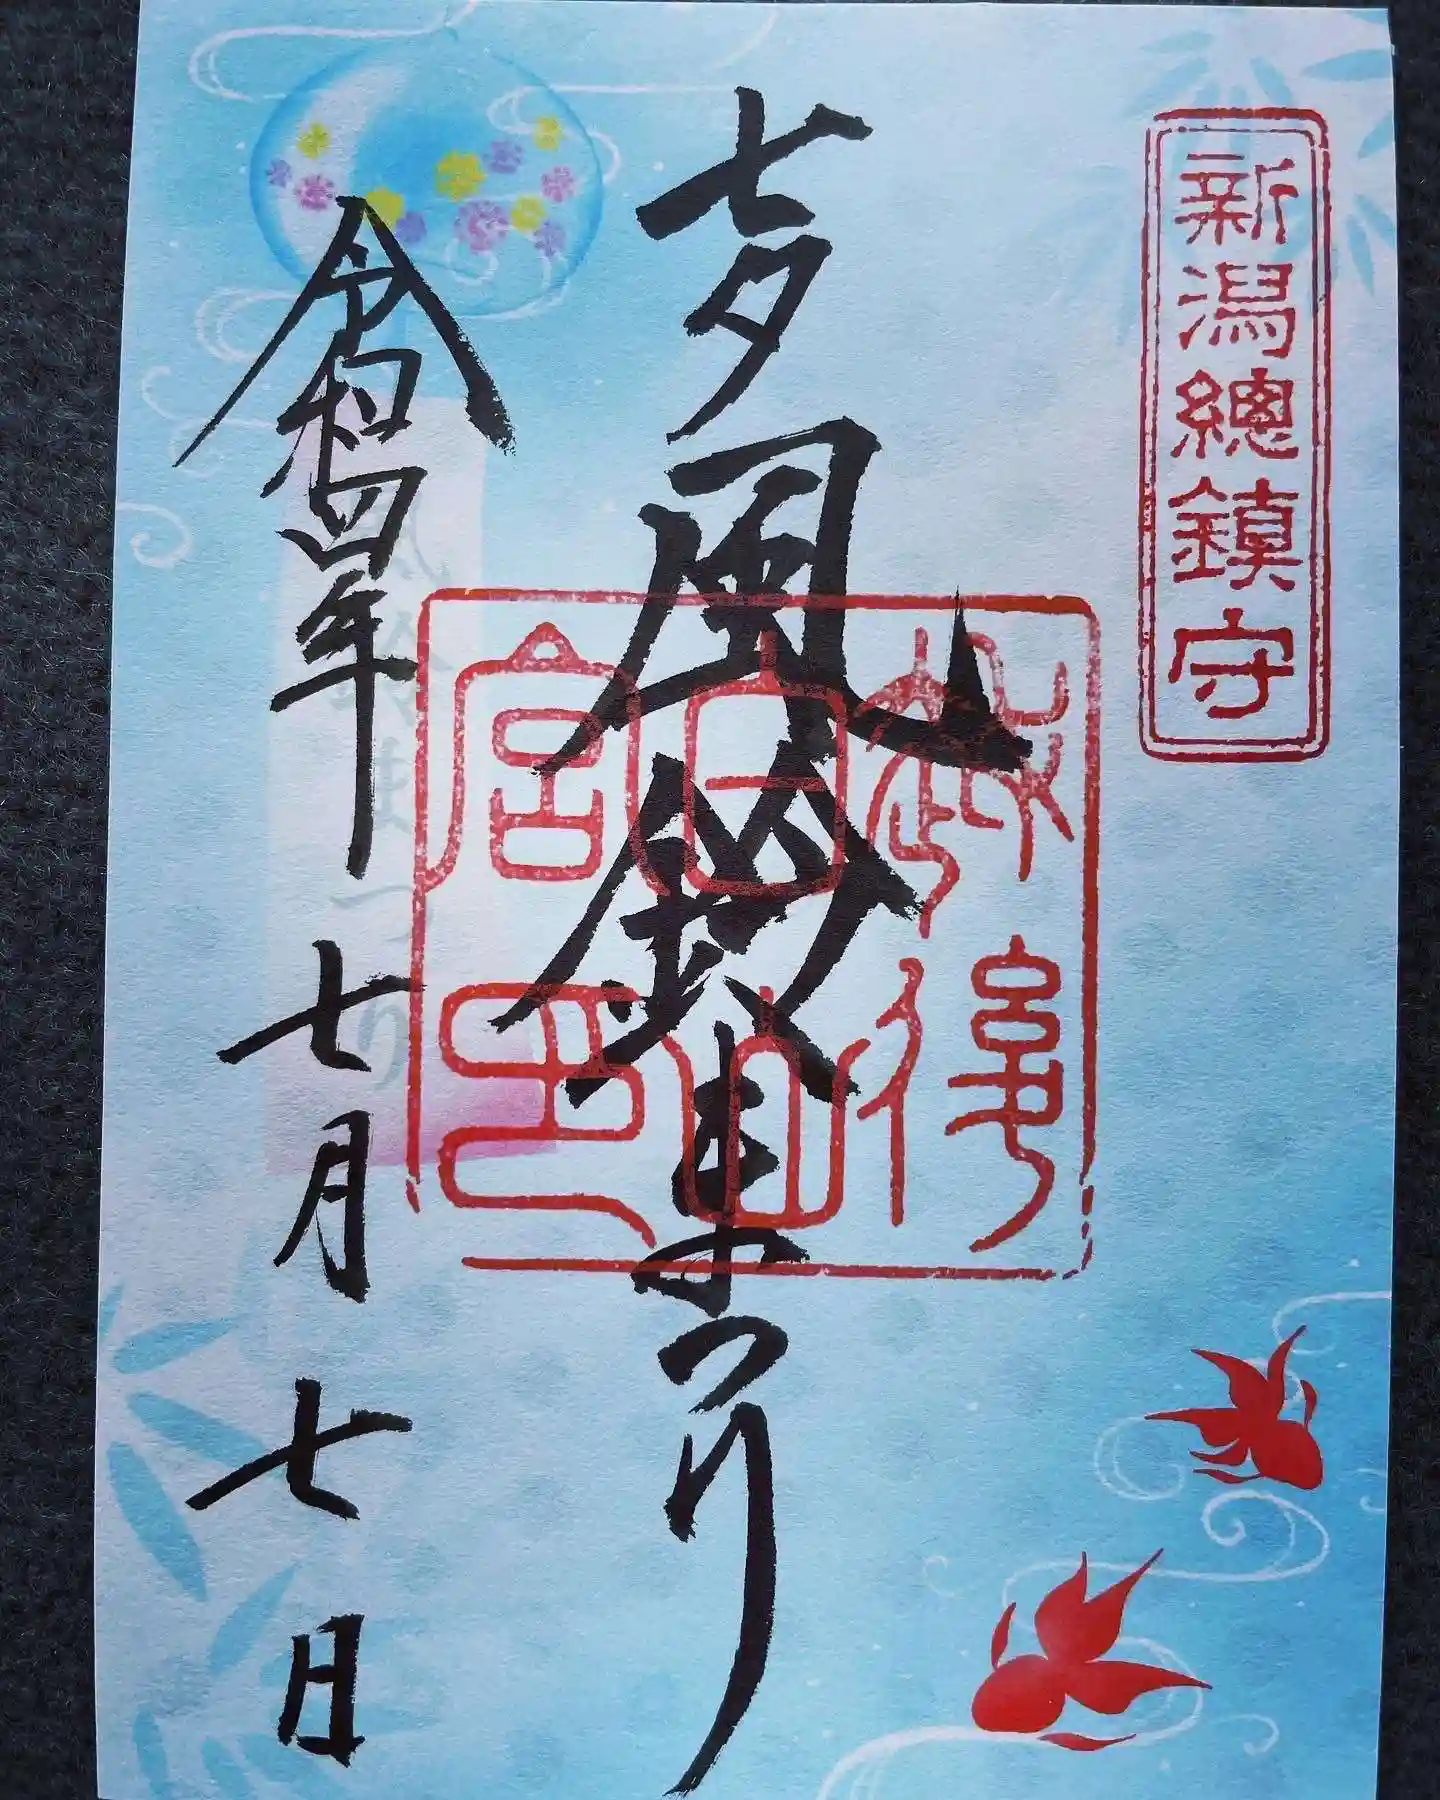 新潟總鎮守
七夕風鈴まつり
越後
白山
宮印
風鈴まつり
令和四年七月七日